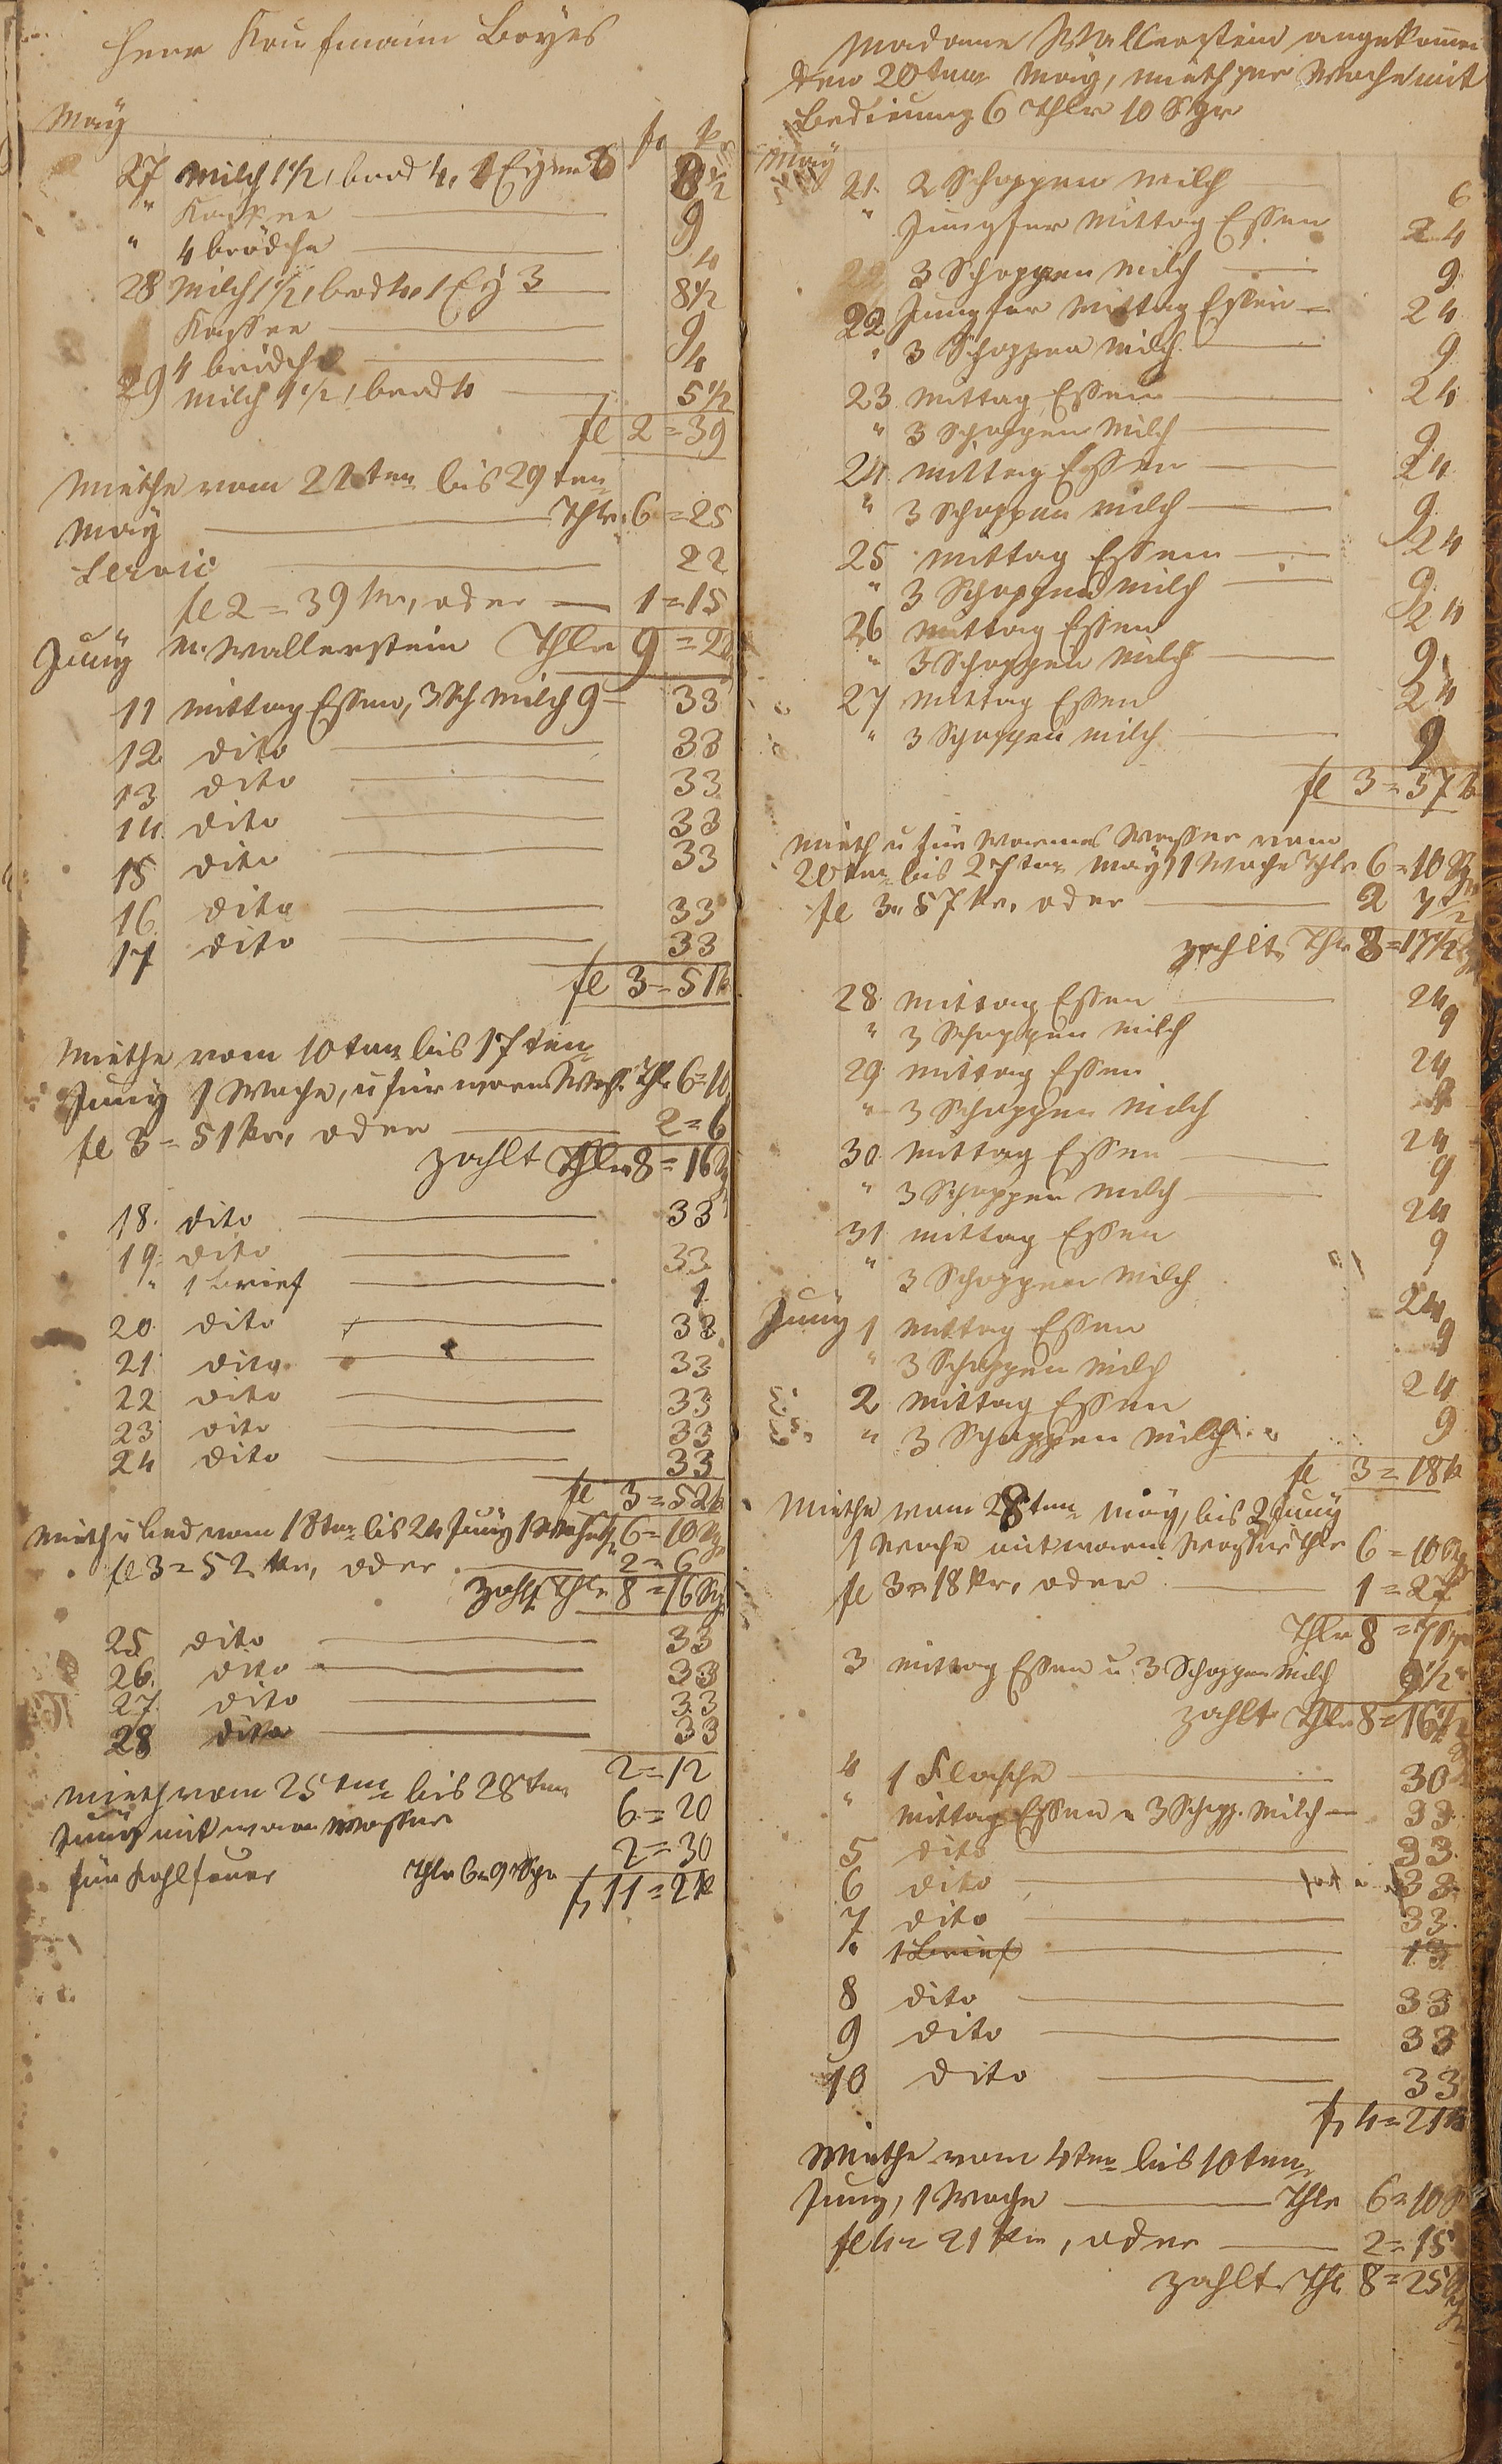 Herr Kaufmann Boyes
May
fl kr
27 Milch 1½, brod 4, 1 Eyer 3 8½
" Kaffee 9
" 4 brödche 4
28 Milch 1½, brod 4, 1 Ey 3 8½
Kaffee 9
4 brödche 4
29 Milch 1½, brod 4 5½
fl 2=39
Miethe vom 22ten bis 29ten
May Thlr. 6=25
Servic 22
fl 2=39 kr, oder 1=15
Juny M. Wallerstein Thlr 9=2
11 Mittag Essen, 3 Sch Milch 9 33
12 dito 33
13 dito 33
14 dito 33
15 dito 33
16 dito 33
17 dito 33
fl 3=51k
Miethe vom 10ten bis 17ten
Juny 1 Woche, u für warm Wass. Thlr 6=10
fl 3=51 kr, oder 2=6
zahlt Thlr 8=16
18. dito 33
19 dito 33
" 1 Brief 1
20 dito 33
21 dito 33
22 dito 33
23 dito 33
24 dito 33
fl 3=52k
Mieth u bed vom 18ten bis 24 Juny 1 Woche 6=10
fl 3=52 kr, oder 2=6
zahlt Thlr 8=16 Sg
25 dito 33
26. dito 33
27. dito 33
28 dito 33
2=12
Mieth vom 25ten bis 28ten 6=20
Juny mit warm Wasser
für Kohlfeuer Thlr 6=9 Sgr 2=30
fl 11=2k
Madame Wallerstein angekommen
den 20ten May, mieth per Woche mit
Bedinung 6 Thlr 10 Sgr
May
21. 2 Schoppen Milch 6
" Jungfer Mittag Essen 24
22 3 Schoppen Milch 9
22 Jungfer Mittag Essen 24
" 3 Schoppen Milch 9
23 Mittag Essen 24
" 3 Schoppen Milch 9
24 Mittag Essen 24
" 3 Schoppen Milch 9
25 Mittag Essen 24
" 3 Schoppen Milch 9
26 Mittag Essen 24
" 3 Schoppen Milch 9
27 Mittag Essen 24
" 3 Schoppen Milch 9
fl 3=57k
Mieth u für warmes Wasser vom
20ten bis 27ten May 1 Woche Thlr 6=10 Sgr
fl 3=57 kr, oder 2 7½
zahlt Thlr 8=17½
28 Mittag Essen 24
" 3 Schoppen Milch 9
29 Mittag Essen 24
" 3 Schoppen Milch 9
30 Mittag Essen 24
" 3 Schoppen Milch 9
31 Mittag Essen 24
" 3 Schoppen Milch 9
Juny 1 Mittag Essen 24
" 3 Schoppen Milch 9
2 Mittag Essen 24
" 3 Schoppen Milch 9
fl 3=18k
Miethe vom 28ten May, bis 2 Juny
1 Woche mit warm Wasser Thlr 6=10 Sgr
fl 3=18 kr, oder 1=27
Thlr 8=7 Sgr
3 Mittag Essen u 3 Schoppen Milch 9½
zahlt Thlr 8=16½
4 1 Flasche 30
" Mittag Essen u 3 Schopp. Milch 33
5 dito 33
6 dito 33
7 dito 33
" 1 Brief 13
8 dito 33
9 dito 33
10 dito 33
fl 4=21k
Miethe vom 4ten bis 10ten
Juny, 1 Woche Thlr 6=10
fl 4=21 kr, oder 2=15
zahlt Thlr 8=25